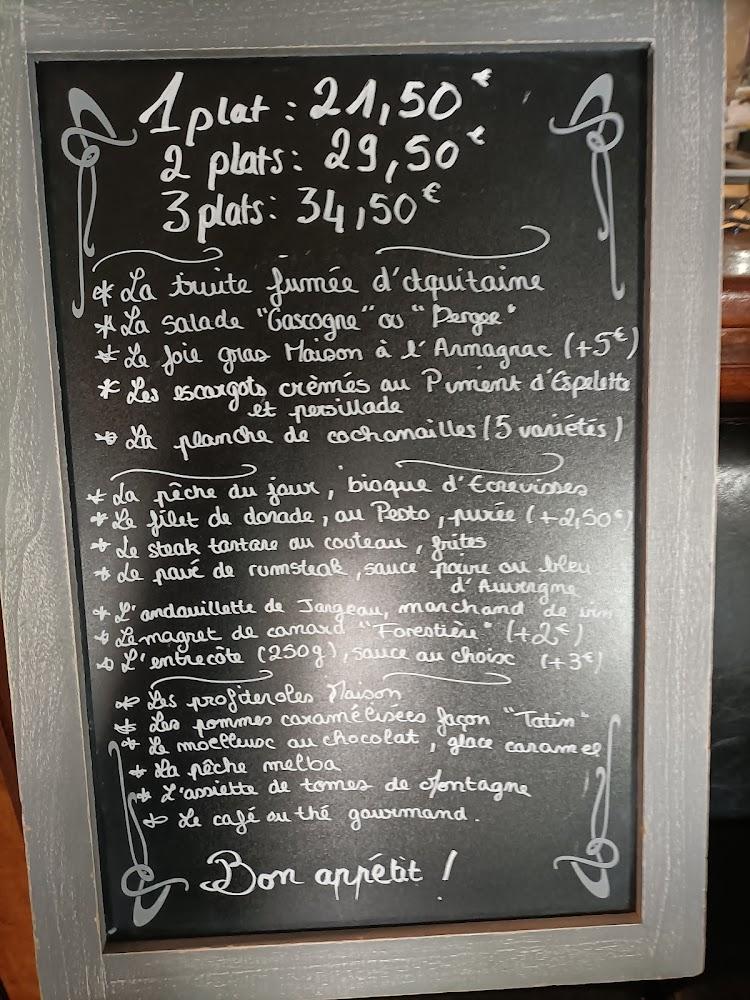 1 plat : 21,50€
2 plats : 29,50€
3 plats : 34,50€
* La truite fumée d'Aquitaine
* La salade "Gascogne" ou "Perge"
* Le foie gras Maison à l'Armagnac (+5€)
* Les escargots crèmés au Piment d'Espelette
et persillade
* La planche de cochonailles (5 variétés)
* La pêche du jour, bisque d'Ecrevisses
* Le filet de dorade, au Pesto, purée (+2,50€)
* Le steak tartare au couteau, frites
* Le pavé de rumsteak, sauce poivre ou bleu
d'Auvergne
* L'andouillette de Jargeau, marchand de vin
* Le magret de canard "Forestière" (+2€)
* L'entrecôte (250g), sauce au choix (+3€)
* Les profiteroles Maison
* Les pommes caramélisées façon "Tatin"
* Le moelleux au chocolat, glace caramel
* La pêche melba
* L'assiette de tomes de Montagne
* Le café ou thé gourmand.
Bon appétit !